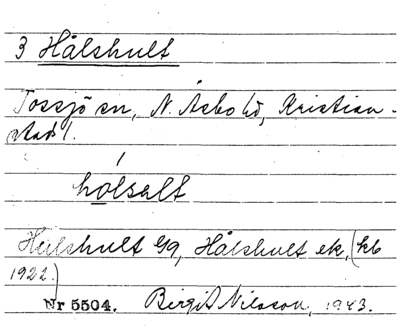 3 Hålshult
Tossjö sn, N. Åsbo hd, Kristian-
stads l.
hòlsalt
Hulshult Gg, Hålshult ek, (kb
1922.)
Nr 5504. Birgit Nilsson, 1943.